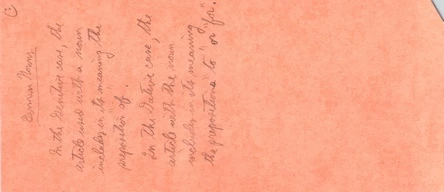 German Nouns
In the Genitive case, the
article used with a noun
includes in its meaning the
preposition of.
In the Dative case, the
article with the noun
includes in its meaning
the prepositions "to" or "for".